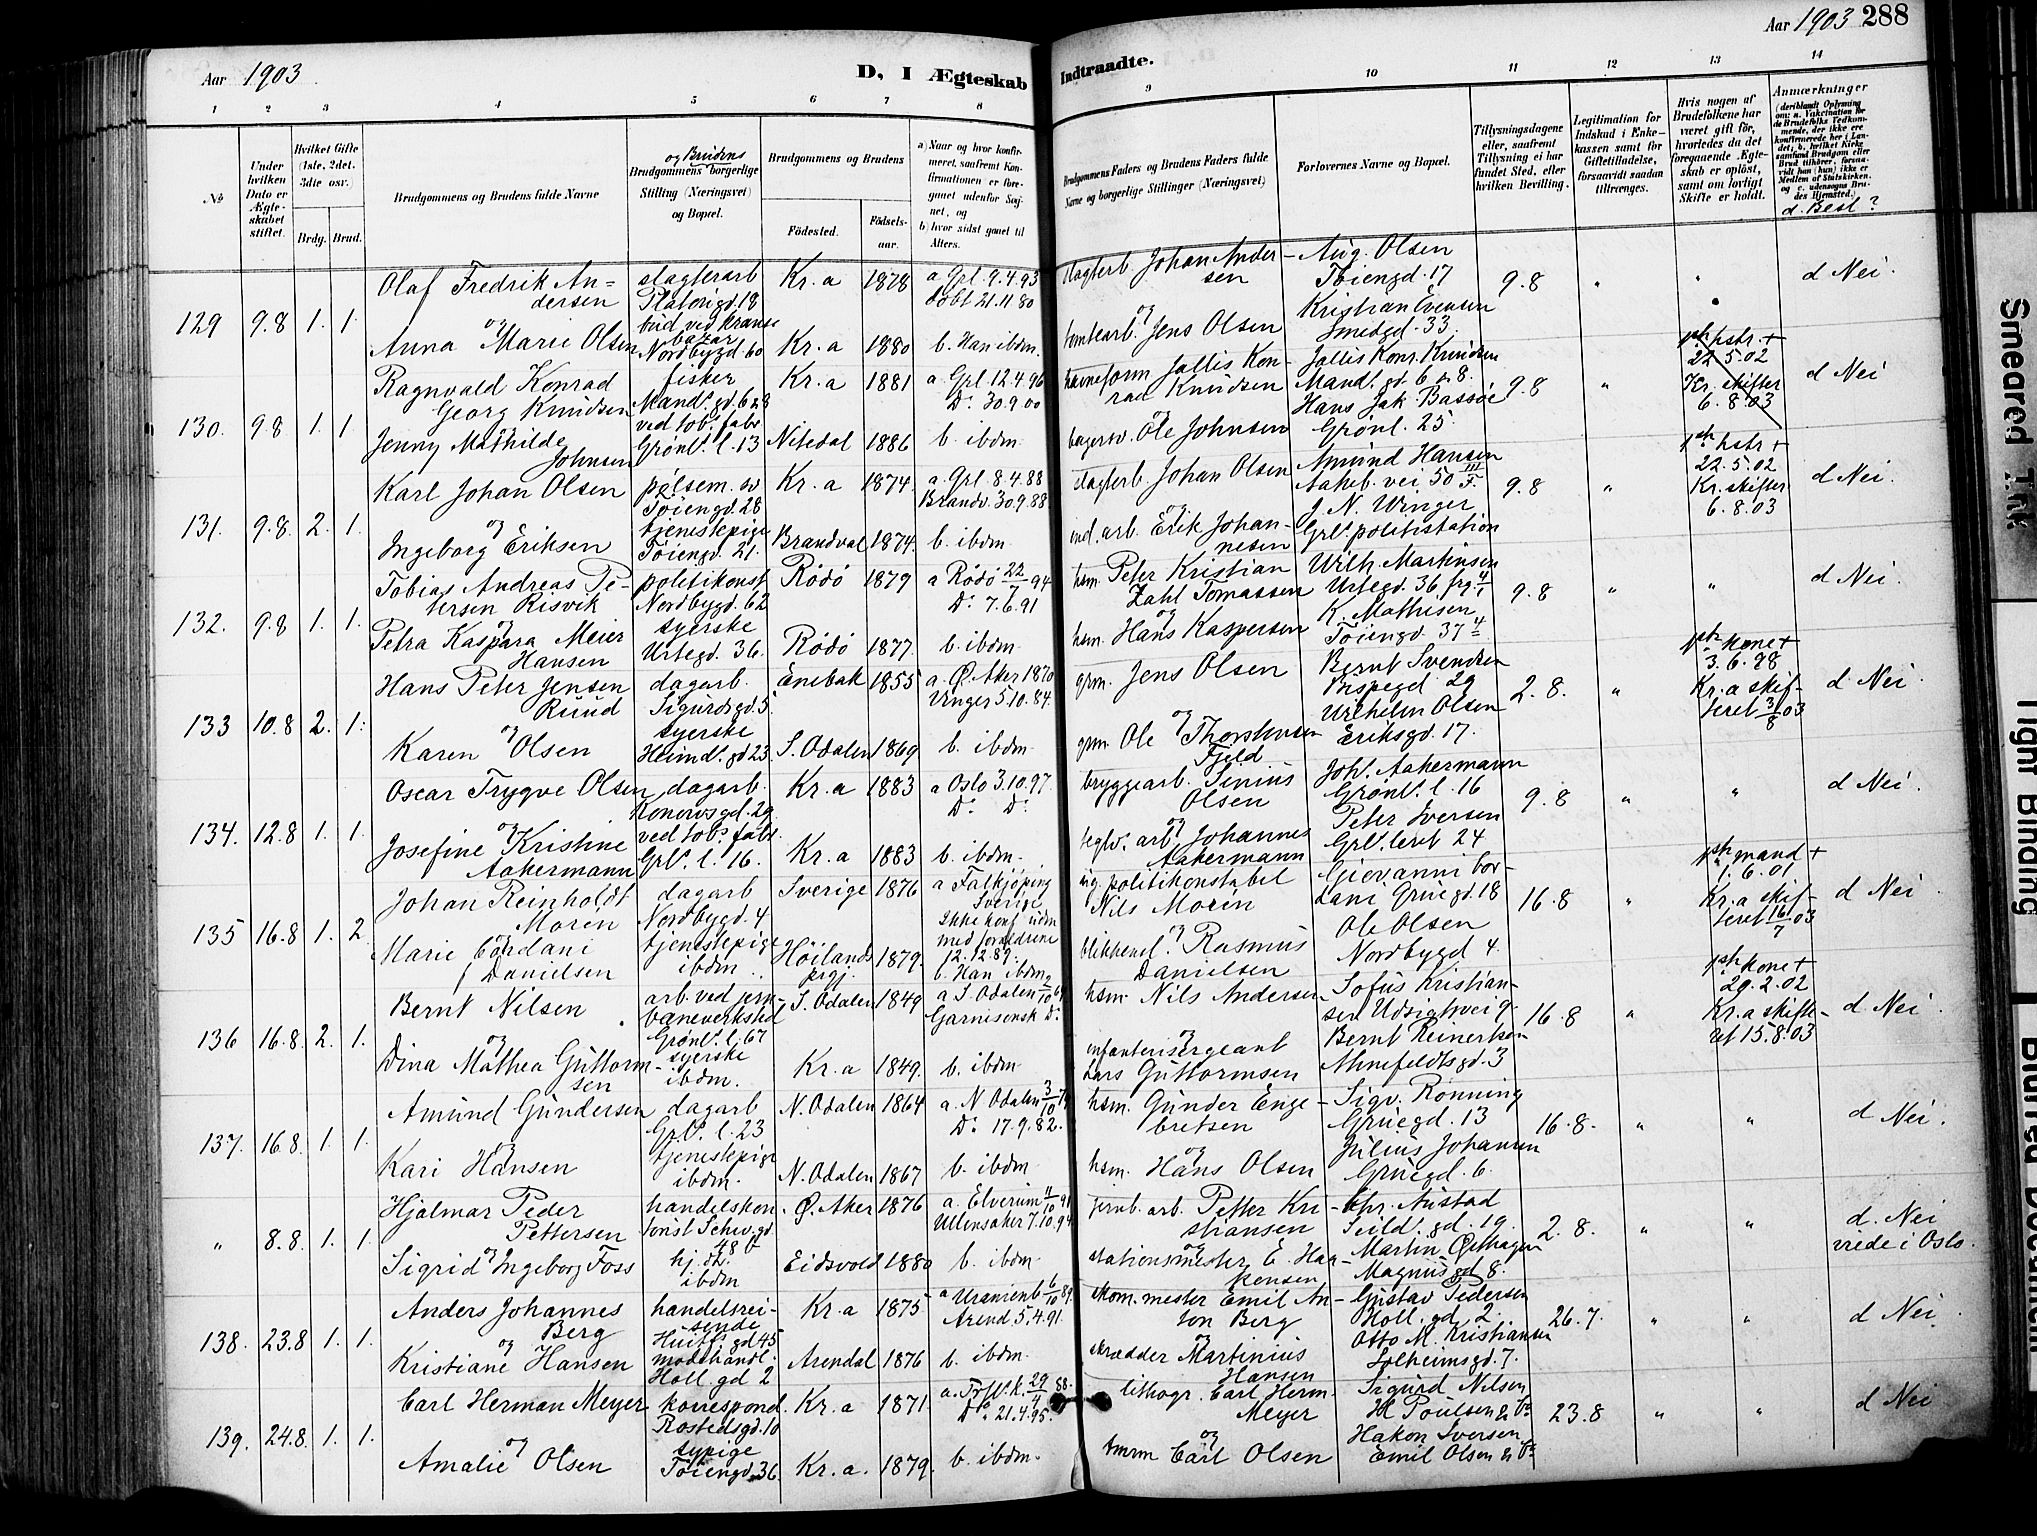 Aar 1903
D, I Ægteskab
Indtraadte.
Aar 1903 288
1 2 3 4 5 6 7 8 9 10 11 12 13 14
№
Under hvilken Dato er Ægteskabet stiftet.
Hvilket Gifte (1ste, 2det, 3die osv.)
Brdg. Brud.
Brudgommens og Brudens fulde Navne
og Brudens
Brudgommens borgerlige Stilling (Næringsvei) og Bopæl.
Brudgommens og Brudens
Födested.
Födselsaar.
a) Naar og hvor konfirmeret, saafremt Konfirmationen er foregaaet udenfor Sognet, og
b) hvor sidst gaaet til Alters.
Brudgommens Faders og Brudens Faders fulde Navne og borgerlige Stillinger (Næringsvei)
Forlovernes Navne og Bopæl.
Tillysningsdagene eller, saafremt Tillysning ei har fundet Sted, efter hvilken Bevilling.
Legitimation for Indskud i Enkekassen samt for Giftetilladelse, forsaavidt saadan tiltrænges.
Hvis nogen af Brudefolkene har været gift för, hvorledes da det foregaaende Ægteskab er oplöst, samt om lovligt Skifte er holdt.
Anmærkninger
d. Besl?
129 9.8 1. 1.
Olaf Fredrik Andersen slagterarb Platousgd. 18 Kr.a 1878 a Grl. 9.4.93 dobt 21.11.80
og
Anna Marie Olsen bud ved Krans bazar Nordbygd 60 Kr.a 1880 b. Han ibdm.
slagterb. Johan Andersen
og
tomtearb Jens Olsen
Aug. Olsen Töiengd. 17
Kristian Evensen Smedgd. 33.
9.8 " " d Nei.
130. 9.8 1. 1
Ragnvald Konrad Georg Knudsen fisker Mandl. gd. 6 & 8 Kr.a 1881 a. Grl. 12.4.96 Do. 30.9.00
og
Jenny Mathilde Johnsen ved tob. fabr Grönl. l. 13 Nitedal 1886 b. ibdm
havneform Jallis Konrad Knudsen
og
bagersv. Ole Johnsen
Jallis Konr. Knudsen Mandl. gd. 6 & 8.
Hans Jak. Bassöe Grönl. 25.
9.8 " 1ste hstr. + 22.5.02 Kr. skifter 6.8.03 d Nei
131. 9.8. 2. 1.
Karl Johan Olsen pølsem. sv Töiengd. 28 Kr.a 1874. a. Grl. 8.4.88 Brandv. 30.9.88
og
Ingeborg Eriksen tjenestepige Töiengd. 21. Brandval 1874. b. ibdm
slagterb. Johan Olsen
og
ind. arb. Erik Johannesen
Amund Hansen Aakeb. vei 50 III F.
J. N. Winger Grl. politistation
9.8 " 1ste hstr + 22.5.02 Kr. skifter 6.8.03 d Nei.
132. 9.8 1. 1.
Tobias Andreas Petersen Risvik politikonst Nordbygd. 62 Rödö 1879 a Rödö 22/7 94 Do. 7.6.91
og
Petra Kaspara Meier Hansen syerske Urtegd. 36. Rödö 1877. b. ibdm
hsm. Peter Kristian Zahl Tomassen
og
hsm. Hans Kaspersen
Wilh. Martinsen Urtegd. 36
K. Mathisen Töiengd. 37 4
9.8 " " d Nei.
133 10.8 2. 1.
Hans Peter Jensen Ruud dagarb. Sigurdsgd. 5. Enebak 1855 a. Ø. Aker 1870 Unger 5.10.84.
og
Karen Olsen syerske Heimdl. gd 23. S. Odalen 1869 b. ibdm
grm. Jens Olsen
og
grm. Ole Thorstensen Fjeld
Bernt Svendsen Bispegd 29
Wilhelm Olsen Eriksgd. 17.
2.8. " 1ste kone + 3.6.98 Kr.a skifteret 3/8 03 d. Nei.
134. 12.8 1. 1.
Oscar Trygve Olsen dagarb. Konowsgd. 29 Kr.a 1883 a Oslo 3.10.97. Do. Do.
og
Josefine Kristine Aakermann ved tob. fabr. Grl. l. 16. Kr.a 1883 b. ibdm.
bryggearb. Sinius Olsen
og
teglv. arb. Johannes Aakermann
Johs. Aakermann Grönl. l. 16
Peter Iversen Grl. leret 24
9.8 " " d Nei.
135 16.8 1. 2.
Johan Reinholdt Morén dagarb Nordbygd. 4 Sverige 1876 a Falkjöping Sverige
og
Marie Cordani f. Danielsen tjenestepige ibdm Höilands prgj. 1879. Ikke konf udm med forældrene 12.12.89. b. Han ibdm
sig. politikonstabel Nils Morén
og
blikkensl. Rasmus Danielsen
Giovanni Cordani Gruegd. 18
Ole Olsen Nordbygd 4.
16.8 " 1ste mand + 1.6.01 Kr.a skifteret 16/7 03 d Nei.
136 16.8. 2. 1.
Bernt Nilsen arb. ved jernbaneverksted Grönl. l. 67 S. Odalen 1849 a S. Odalen Garnisonsk Do.
og
Dina Mathea Guttormsen syerske ibdm. Kr.a 1849. b. ibdm
hsm. Nils Andersen
og
infanterisergeant Lars Guttormsen
Sofus Kristiansen Udsigtsvei 9.
Bernt Reinertsen Munifeldtsgd. 3
16.8 " 1ste kone + 29.2.02 Kr.a skifteret 15.8.03 d Nei.
137. 16.8. 1. 1.
Amund Gundersen dagarb Grl. l. 23 N. Odalen 1864 a. N Odalen 3/10 79 Do. 17.9.82.
og
Kari Hansen tjenestepige ibdm. N. Odalen 1867 b. ibdm
hsm. Gunder Engebretsen
og
hsm. Hans Olsen
Sigv. Rönning Gruegd. 13
Julius Johansen Gruegd. 6.
16.8. " " d Nei.
" 8.8. 1. 1.
Hjalmar Peder Pettersen handelskontorist Schw. gd. 48 b Ø. Aker 1876 a. Elverum 4/10 91 Ullensaker 7.10.94
og
Sigrid Ingeborg Foss hj. dt. ibdm Eidsvold 1880 b. ibdm
jernb. arb. Petter Kristiansen
og
stationsmester E. Hakensen
Chr. Austad Seild. gd. 19.
Martin Østhagen Magnus gd 8.
2.8. " " d. Nei vrede i Oslo.
138. 23.8 1. 1.
Anders Johannes Berg handelsreisende Huitfs. gd 45 Kr.a 1875 a Uranienb 6/10 89. Arend 5.4.91.
og
Kristiane Hansen modehandl. Holl. gd 2 Arendal 1876 b. ibdm.
skom. mester Emil Anton Berg
og
skrædder Martinius Hansen
Gustav Pedersen Holl. gd. 2.
Otto M. Kristiansen Solheimsgd. 7.
26.7. " " d Nei.
139. 24.8. 1. 1.
Carl Herman Meyer korrespond. Rostedsgd. 10 Kr.a 1871. a. Trfl. k. 29/4 88. Do. 21.4.95.
og
Amalie Olsen sypige Töiengd. 36. Kr.a. 1879. b. ibdm.
lithogr. Carl Herm. Meyer
og
tmrm Carl Olsen
Sigurd Nilsen M Poulsen & Co
Hakon Iversen Emil Olsen & Co
23.8 " " d Nei
Smeared Ink
Tight Binding
Blurred Document